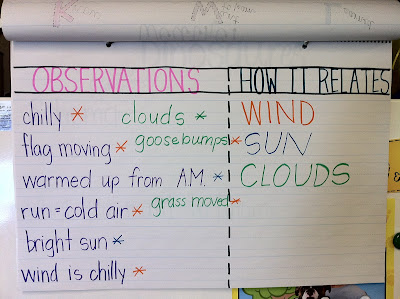 OBSERVATIONS HOW IT RELATES
chilly * clouds * WIND
flag moving * goosebumps * SUN
warmed up from A.M. * CLOUDS
run = cold air * grass moved *
bright sun *
wind is chilly *